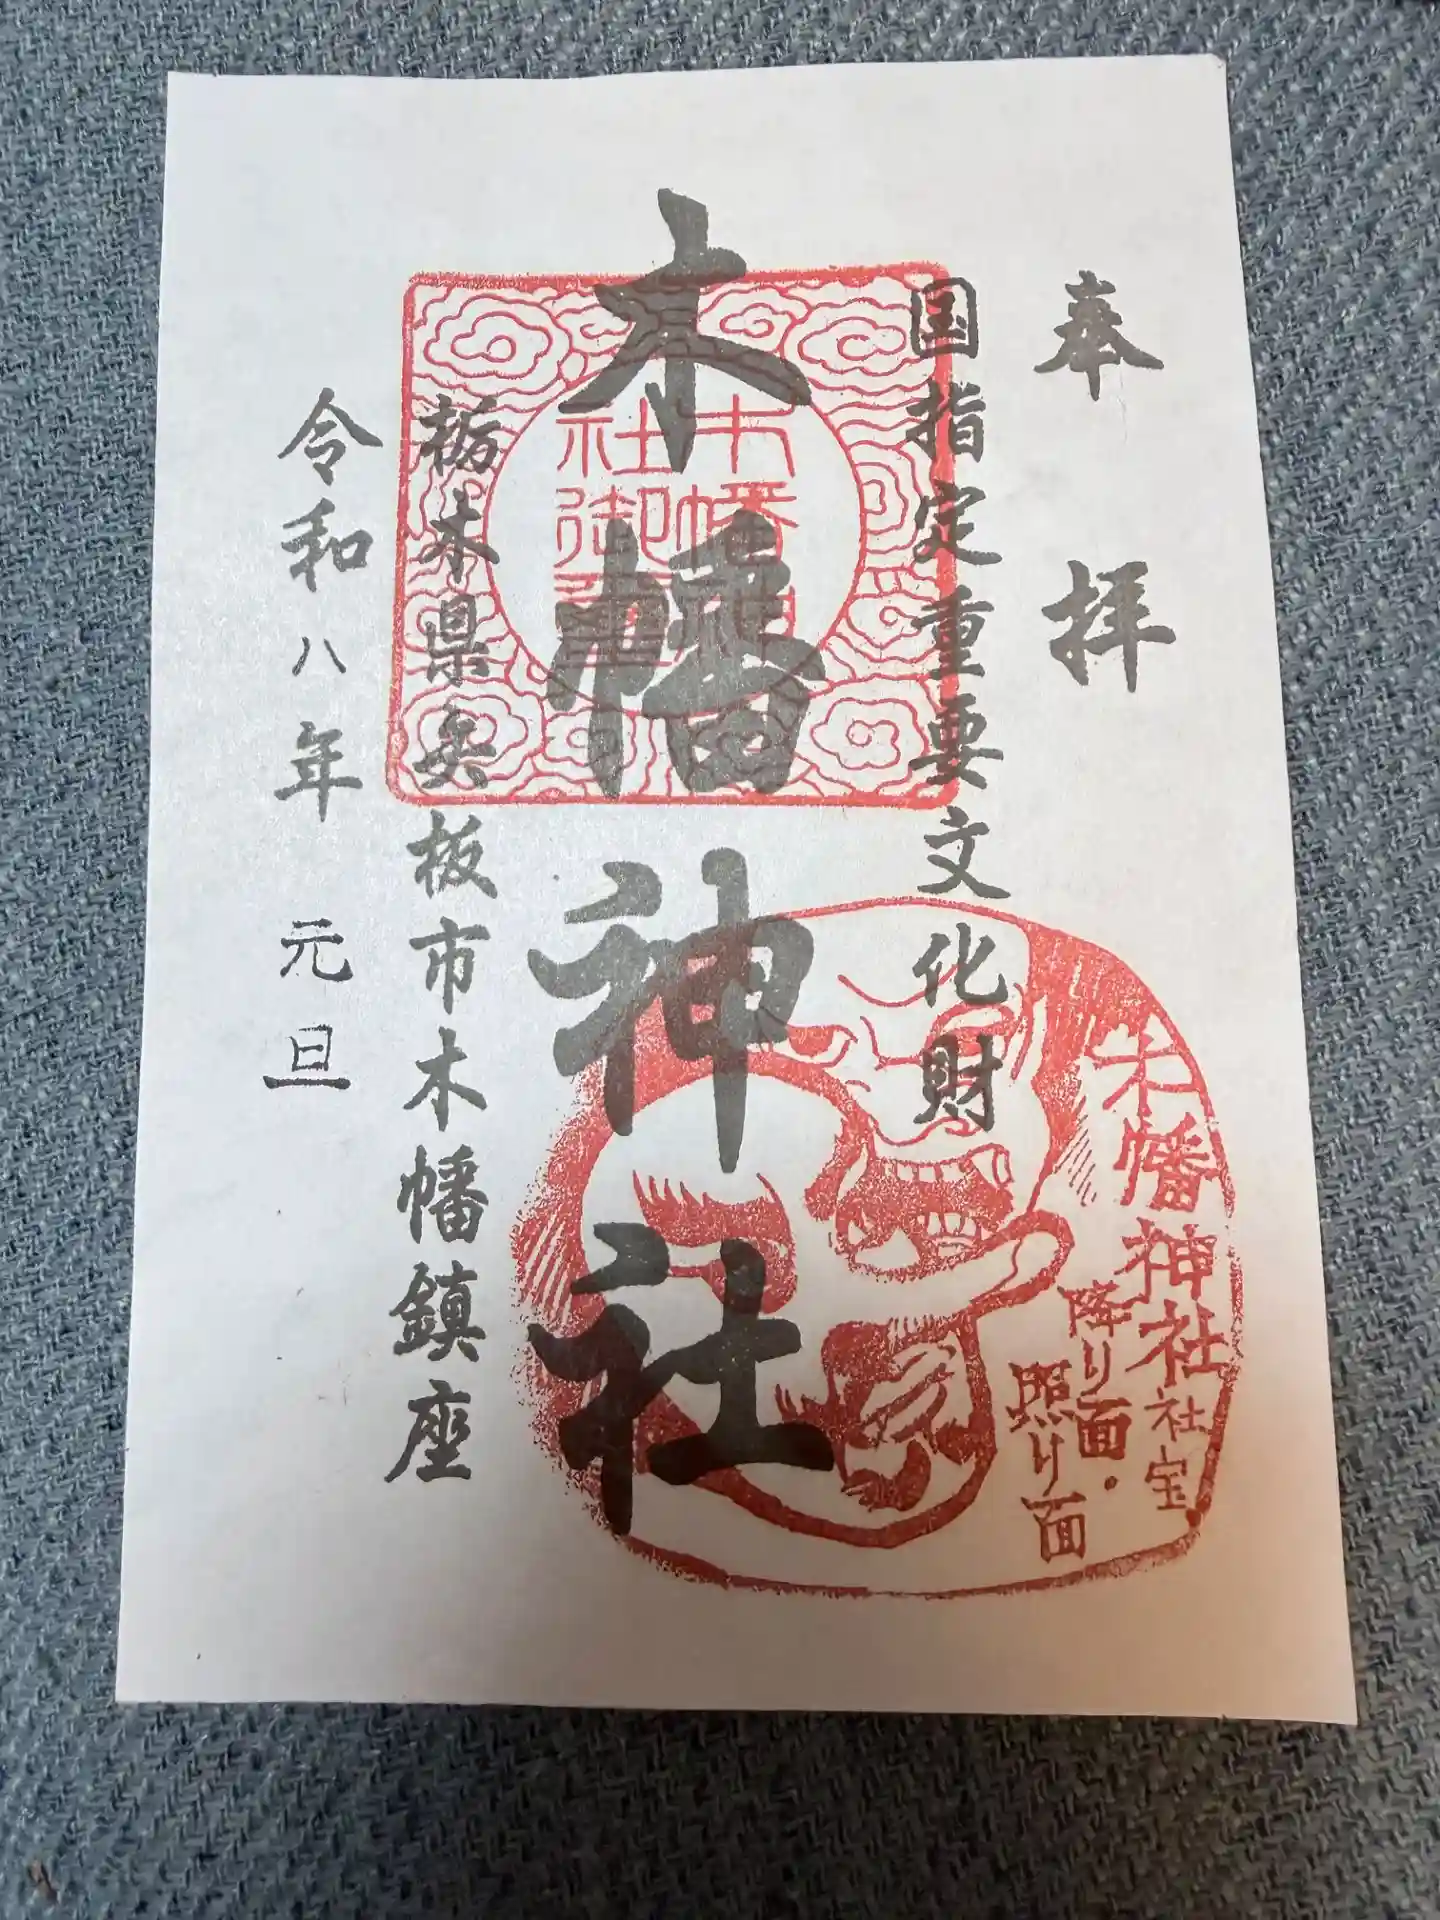 奉拝
国指定重要文化財
木幡神社
栃木県矢板市木幡鎮座
令和八年元旦
木幡神
社御璽
木幡神社社宝
降り面・
照り面